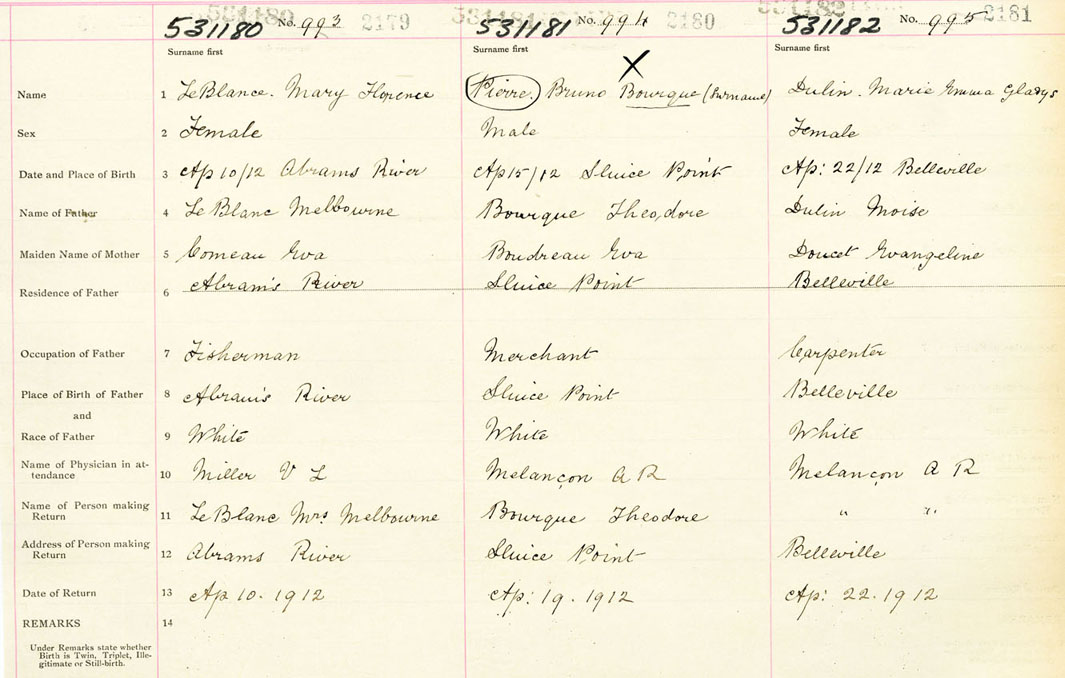 531180 No. 993 2179 531181 No. 994 2180 531182 No. 995 2181
Surname first Surname first Surname first
X
Name 1 LeBlance. Mary Florence Pierre. Bruno Bourque (Surname) Dulin. Marie Emma Gladys
Sex 2 Female Male Female
Date and Place of Birth 3 Ap 10/12 Abrams River Ap 15/12 Sluice Point Ap: 22/12 Belleville
Name of Father 4 Le Blanc Melbourne Bourque Theodore Dulin Moise
Maiden Name of Mother 5 Comeau Eva Boudreau Eva Doucet Evangeline
Residence of Father 6 Abram's River Sluice Point Belleville
Occupation of Father 7 Fisherman Merchant Carpenter
Place of Birth of Father 8 Abram's River Sluice Point Belleville
and
Race of Father 9 White White White
Name of Physician in at-
tendance 10 Miller V L Melançon A R Melançon A R
Name of Person making
Return 11 LeBlanc Mrs Melbourne Bourque Theodore " "
Address of Person making
Return 12 Abrams River Sluice Point Belleville
Date of Return 13 Ap 10. 1912 Ap: 19. 1912 Ap: 22. 1912
REMARKS 14
Under Remarks state whether
Birth is Twin, Triplet, Ille-
gitimate or Still-birth.